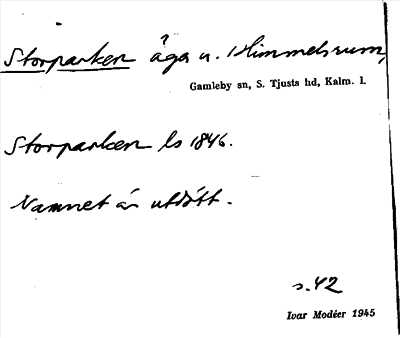 Storparken åga u. Himmelsrum,
Gamleby sn, S. Tjusts hd, Kalm. l.
Storparken ls 1846.
Namnet är utdött.
s. 42
Ivar Modéer 1945